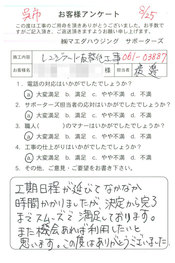 呉市
8/25
お客様アンケート
この度は工事のご用命を頂きありがとうございました。お手数で
すがご記入頂き、ご返送頂きますようお願い申し上げます。
㈱マエダハウジング サポーターズ
施工内容 レンジフード取替他工事 061-03887
様 担当者 渡邉
1. 電話の対応はいかがでしたでしょうか?
a 大変満足 b. 満足 c. やや不満 d. 不満
2. サポーターズ担当者の対応はいかがでしたでしょうか?
a 大変満足 b. 満足 c. やや不満 d. 不満
3. 職人( )のマナーはいかがでしたでしょうか?
a 大変満足 b. 満足 c. やや不満 d. 不満
4. 工事の仕上がりはいかがでしたでしょうか?
a 大変満足 b. 満足 c. やや不満 d. 不満
5. その他、ご意見・ご要望をお書き下さい。
工期日程が延びてなかなか
時間かかりましたが、決定から完了
までスムーズで満足しております。
また機会あれば利用したいと
思います。この度はありがとうございました。